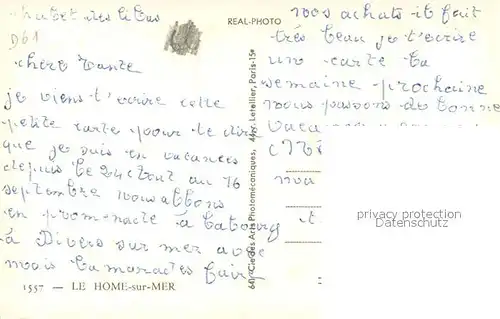 chalet des lilas
D61
REAL-PHOTO
chère Tante
je viens t'ecrire cette
petite carte pour te dire
que je suis en vacances
depuis le 24 aout au 16
septembre nous allons
en promenade à Cabourg
à Divers sur mer avec
mois
1557 — LE HOME-sur-MER
64, Cie des Arts Photomécaniques, 44, r. Letellier, Paris-15e
nos achats it fait
très beau je t'ecrire
un carte la
semaine prochaine
nous passons de bonne
vaca
privacy protection
Datenschutz